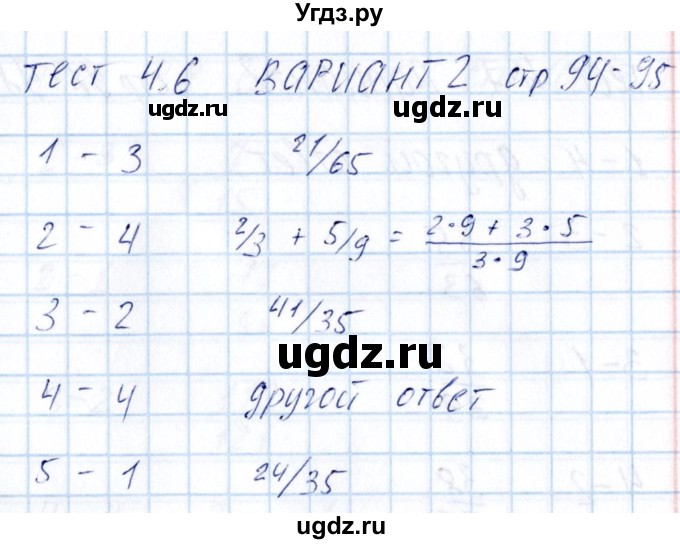 Угдз.ру
тест 4.6 ВАРИАНТ 2 стр 94-95
ugdz.ru
1 - 3 21/65
ugdz.ru
2 - 4 2/3 + 5/9 = (2•9 + 3•5)/(3•9)
3 - 2 41/35
ugdz.ru
4 - 4 другой ответ
ugdz.ru
5 - 1 24/35
ugdz.ru
ugdz.ru